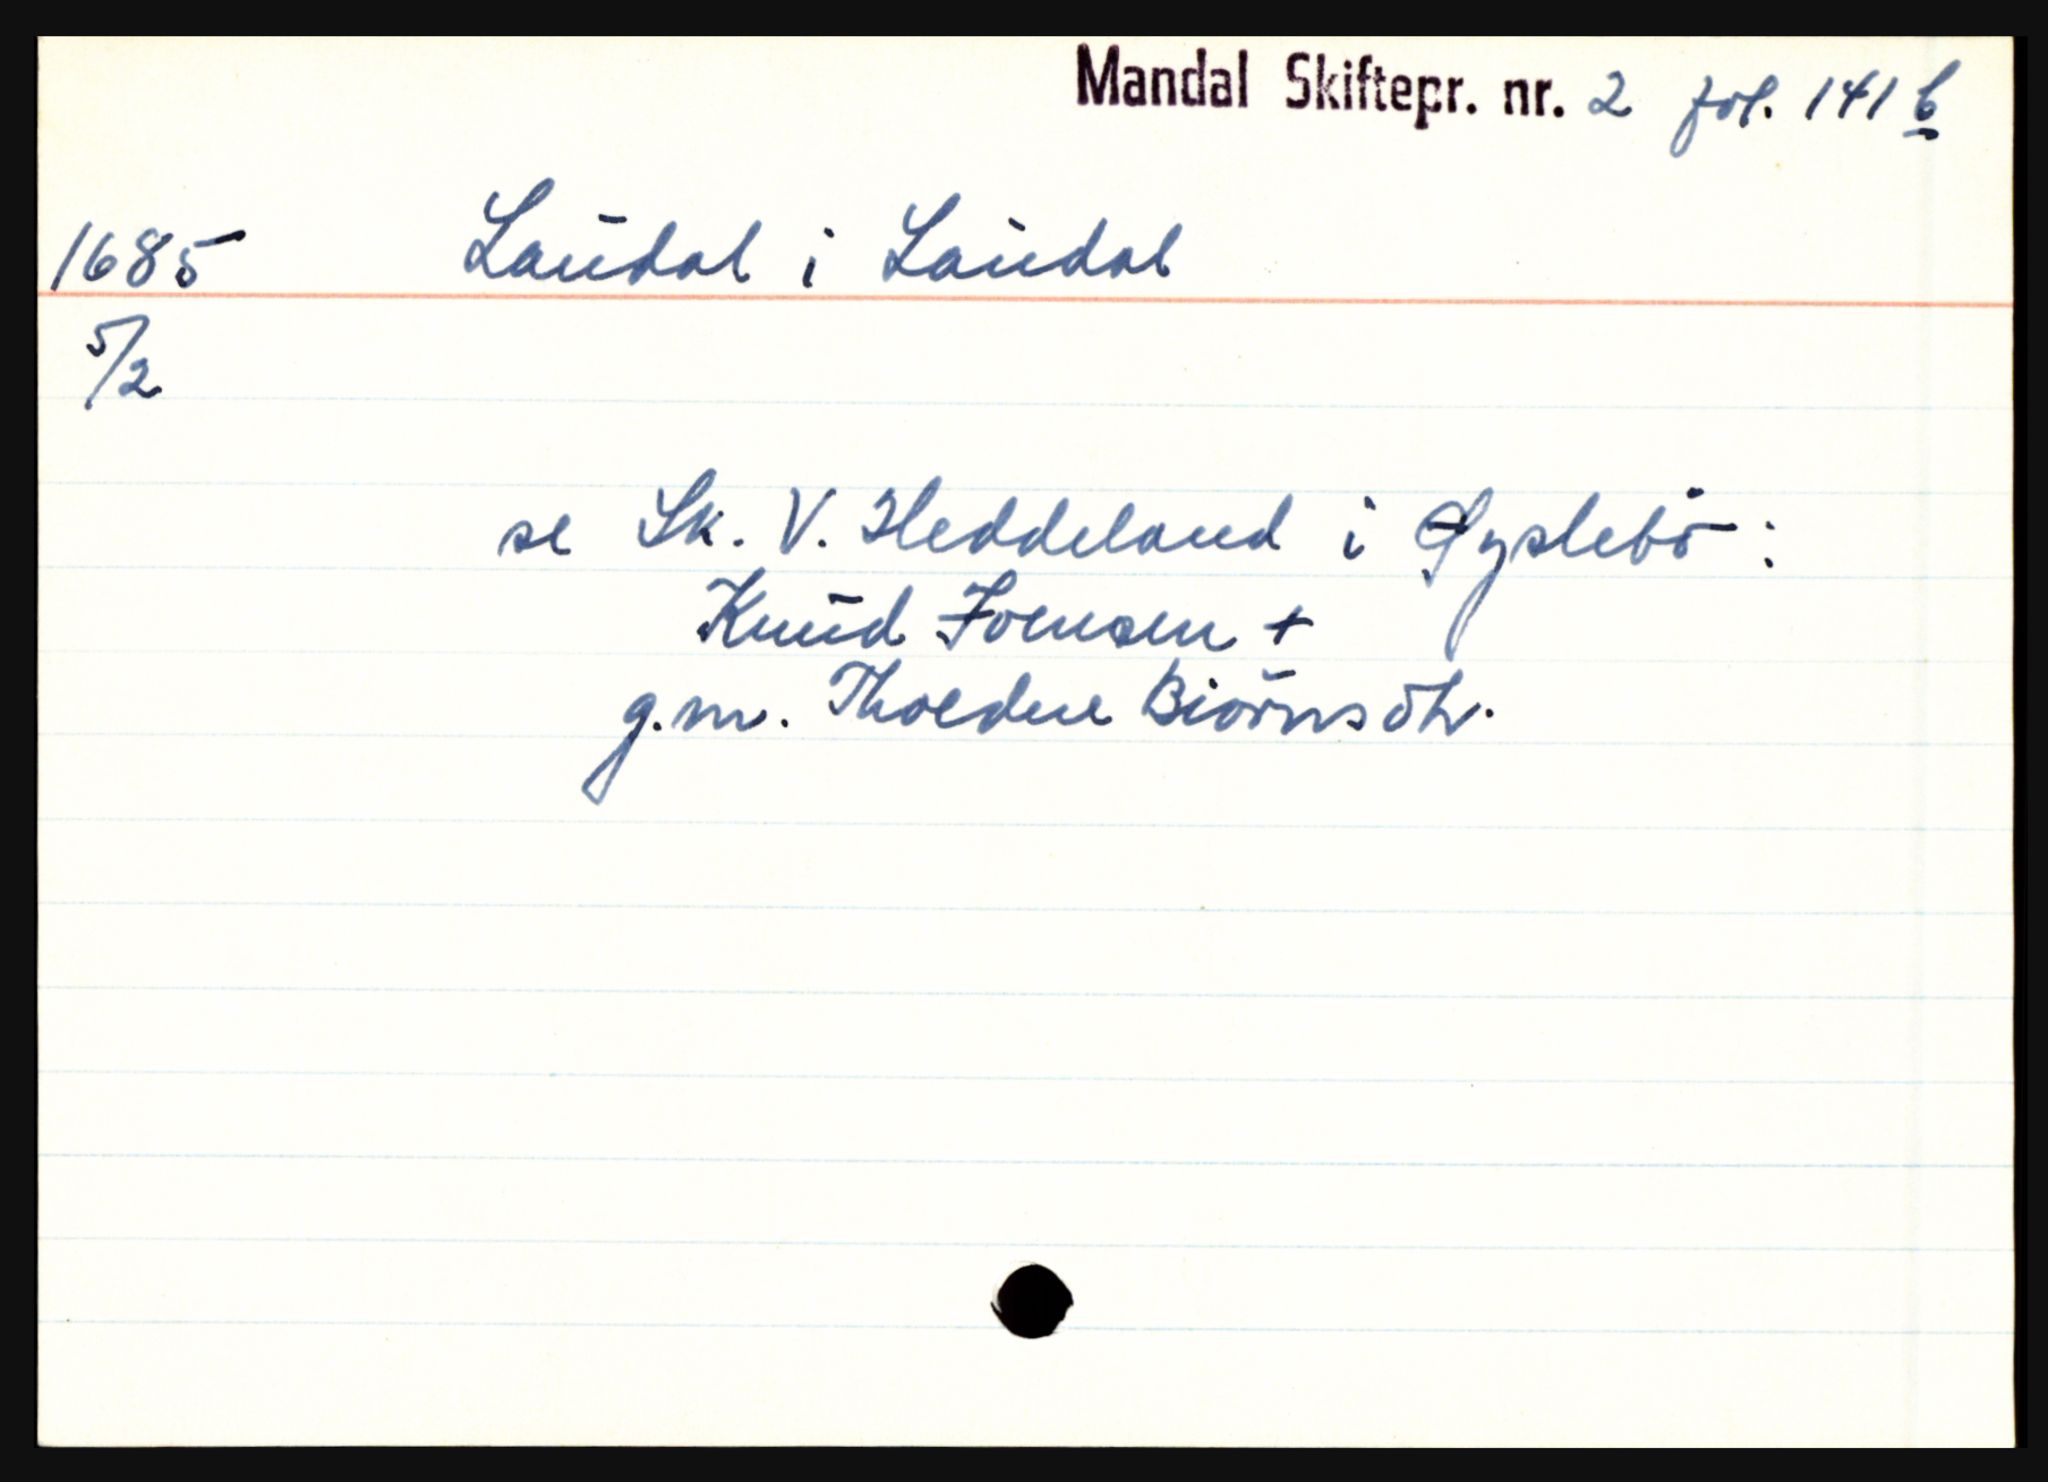 Mandal Skiftepr. nr. 2 fol. 141 b
1685 Laudal i Laudal
5/2
se Sk. V. Heddeland i Øyslebö:
Knud Joensen +
g.m. Thoedne Biörnsdtr.